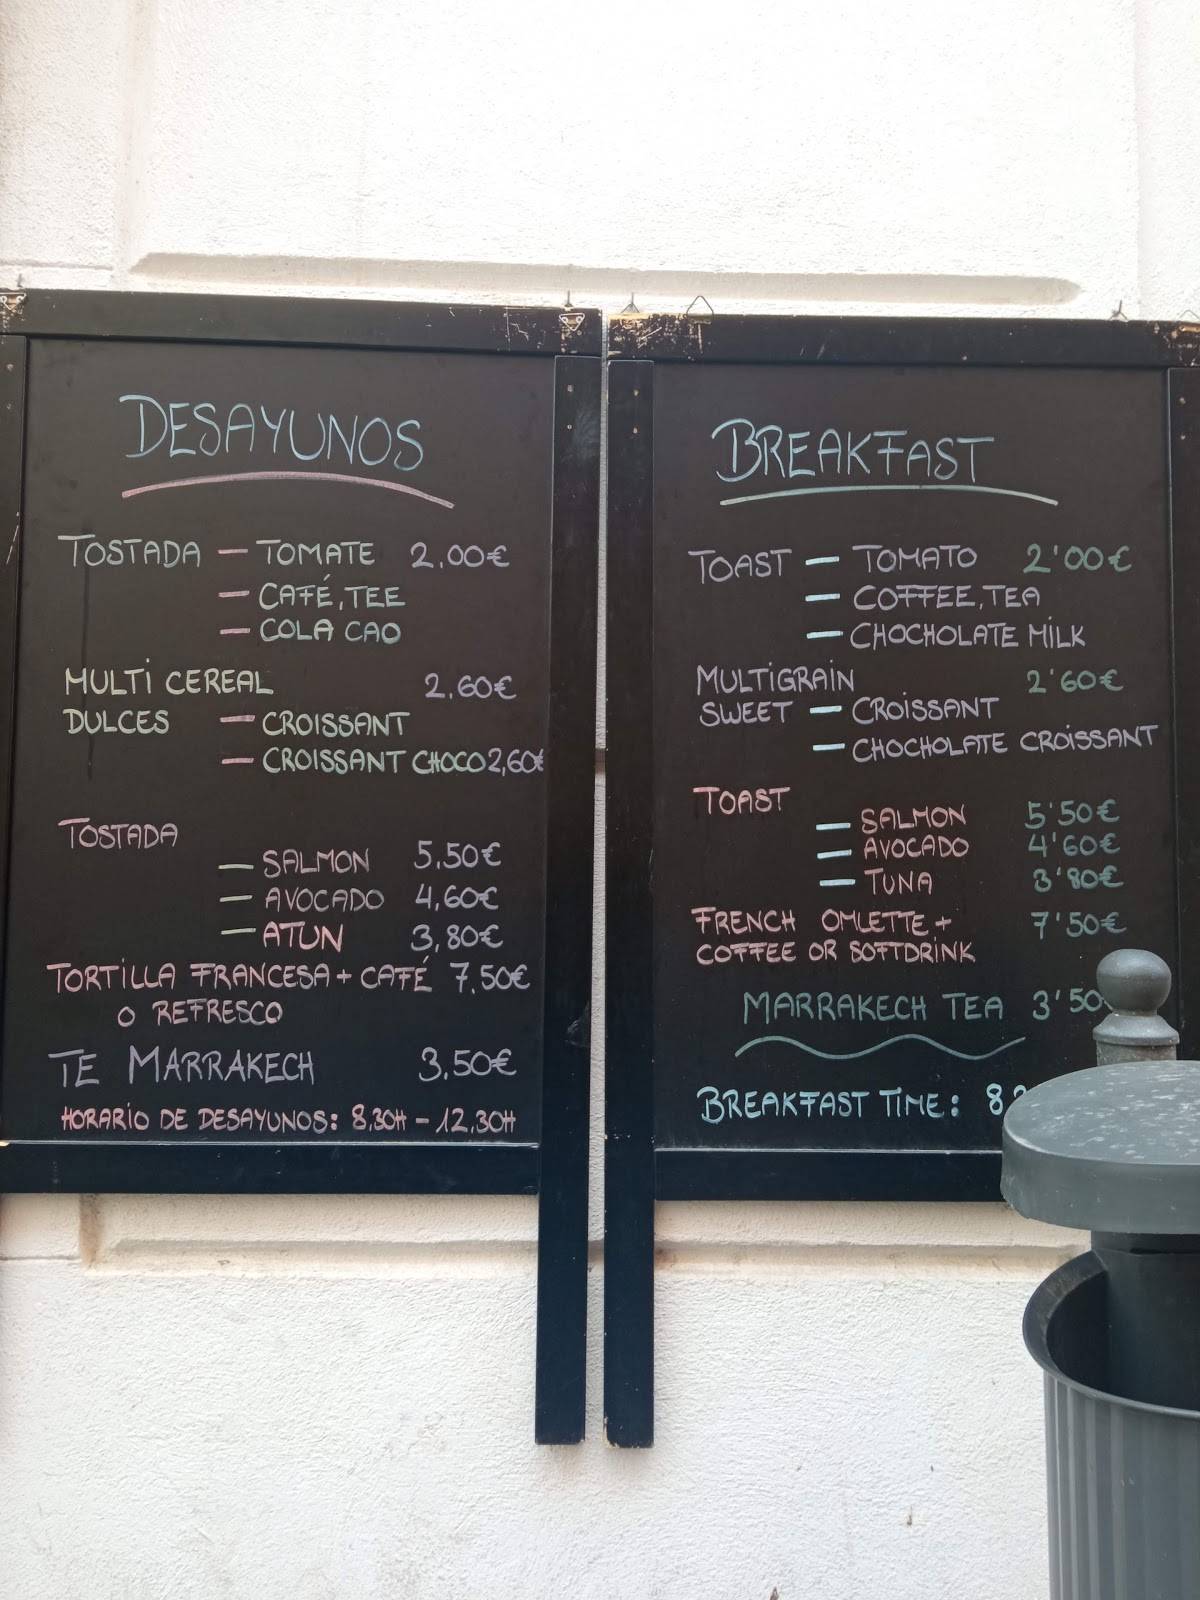 DESAYUNOS
TOSTADA – TOMATE 2.00€
– CAFÉ, TEE
– COLA CAO
MULTI CEREAL 2.60€
DULCES – CROISSANT
– CROISSANT CHOCO 2,60€
TOSTADA
– SALMON 5,50€
– AVOCADO 4,60€
– ATUN 3,80€
TORTILLA FRANCESA + CAFÉ 7,50€
O REFRESCO
TE MARRAKECH 3,50€
HORARIO DE DESAYUNOS: 8,30H – 12,30H
BREAKFAST
TOAST – TOMATO 2'00€
– COFFEE, TEA
– CHOCHOLATE MILK
MULTIGRAIN 2'60€
SWEET – CROISSANT
– CHOCHOLATE CROISSANT
TOAST
– SALMON 5'50€
– AVOCADO 4'60€
– TUNA 3'80€
FRENCH OMLETTE + 7'50€
COFFEE OR SOFTDRINK
MARRAKECH TEA 3'50
BREAKFAST TIME: 8